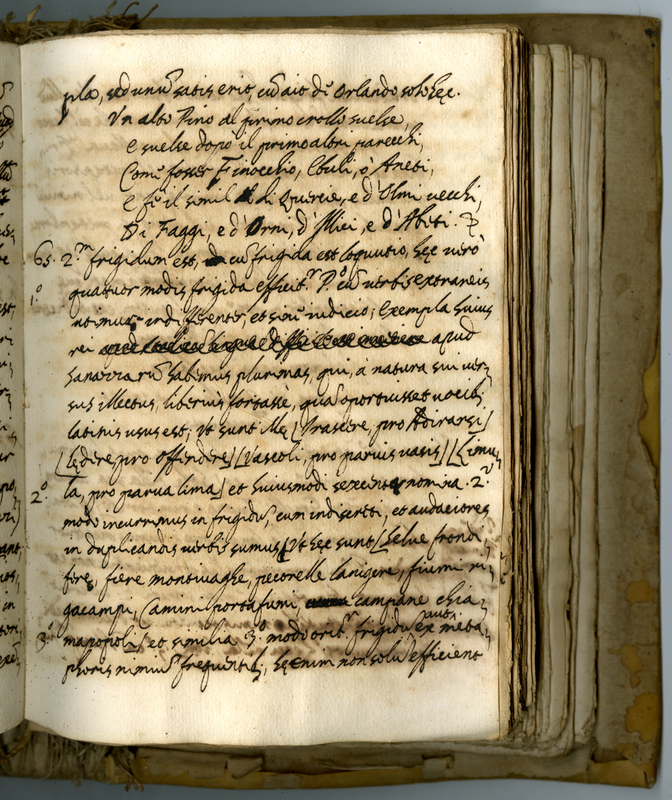 pla, sed unũ satis erit, cũ ait de Orlando sol hęc.
Un alto Pino al primo crollo suelse,
e suelse dopo il primo altri parecchi,
Come fosser Finocchio, Ebuli, ò Aneti,
e fe il simil di Quercie, e d'Olmi uecchi,
Di Faggi, e d'Orni, d'Illici, e d'Abeti.
65. 2.m frigidum est, cũ frigida est loquutio, hęc uerò
1.o quatuor modis frigida efficit.r P.o cũ uerbis extraneis
utimur indifferenter, et sine iudicio; exempla huius
rei apud
Sanazzarũ habemus plurima, qui, a natura sui uer
sus illectus, liberius fortasse, quã oportuisset uocib;
latinis usus est; ut sunt illę [Irascere, pro Adirarsi]
[Lędere, pro offendere] [Vascoli, pro paruis uasis] [Limu
la, pro parua lima] et huiusmodi sexcenta nomina. 2.o
2.o modo incurrimus in frigidũ, cum indiserti, et audaciores
in duplicandis uerbis sumus [Ut hęc sunt [Selue frondi
fere, fiere montiuaghe, pecorelle lanigere, fiumi ri
gacampi, Camini portafumi, campane chia
3.o mapopoli] et similia. 3.o modo orit.r frigidũ autẽ ex meta
phoris nimiũ frequentib;, hę enim non solũ efficient